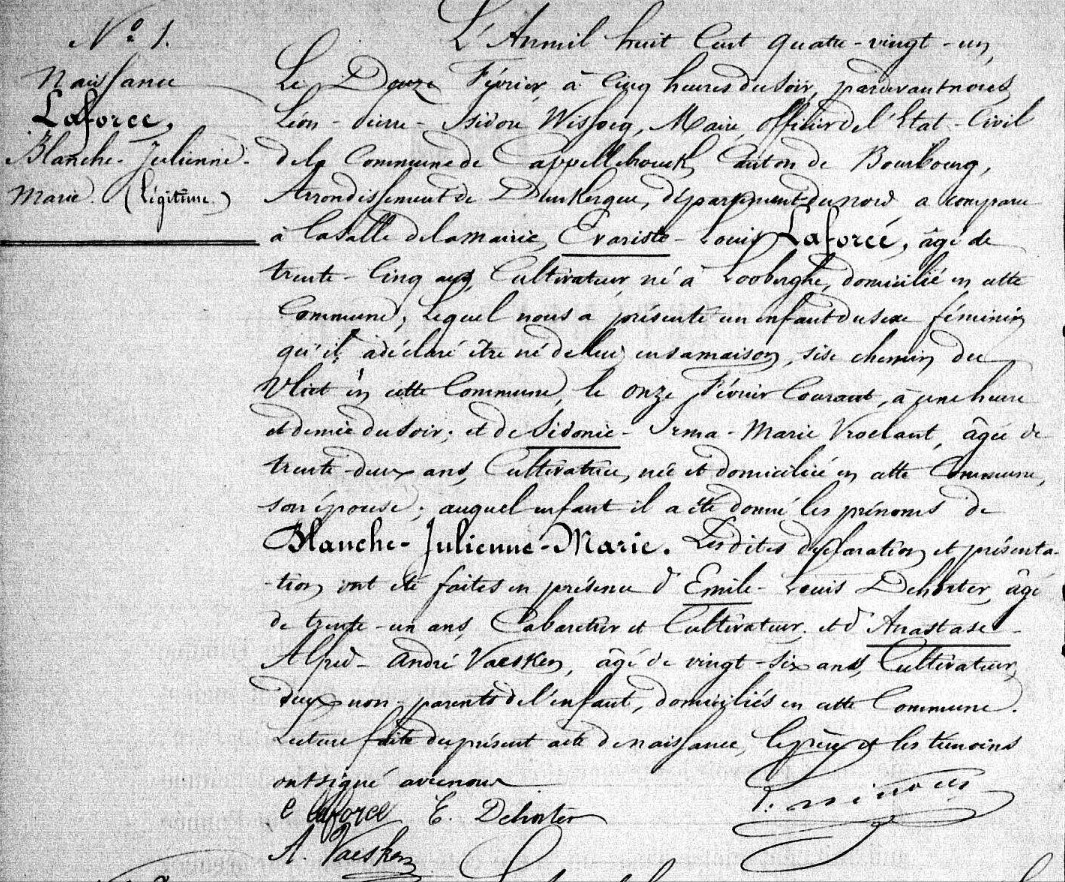 N° 1.
Naissance
Laforce,
Blanche-Julienne-
Marie. (légitime)
L'An mil huit Cent quatre-vingt-un,
Le Douze Février, à Cinq heures du soir, pardevant nous
Léon-Pierre-Isidore Wissocq, Maire, officier de l'Etat-Civil
de la Commune de Cappellebrouck, Canton de Bourbourg,
Arrondissement de Dunkerque, département du nord a comparu
à la salle de la mairie, Evariste-Louis Laforce, âgé de
trente-Cinq ans, Cultivateur, né à Looberghe, domicilié en cette
Commune; lequel nous a présenté un enfant du sexe féminin
qu'il a déclaré être né de lui, en sa maison, sise chemin du
Vliet en cette Commune, le onze Février Courant, à une heure
et demie du soir; et de Sidonie-Irma-Marie Vroelant, âgée de
trente-deux ans, Cultivatrice, née et domiciliée en cette Commune,
son épouse; auquel enfant il a été donné les prénoms de
Blanche-Julienne-Marie. Lesdites déclaration et présenta-
-tion ont été faites en présence d'Emile-Louis Dehorter, âgé
de trente-un ans, Cabaretier et Cultivateur, et d'Anastase-
Alfred-André Vaesken, âgé de vingt-six ans, Cultivateur,
deux non-parents de l'enfant, domiciliés en cette Commune.
Lecture faite du présent acte de naissance, le père et les témoins
ont signé avec nous
e laforce E. Dehorter
A. Vaesken